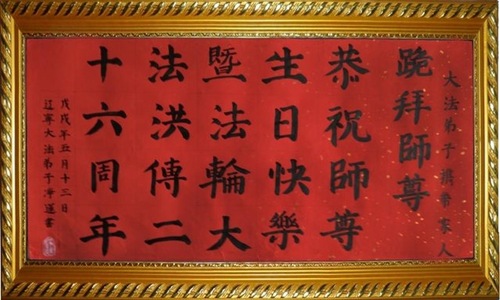 大法弟子携带家人
跪拜師尊
恭祝師尊
生日快樂
暨法輪大
法洪傳二
十六周年
戊戌年五月十三日
辽寧大法弟子淨蓮書